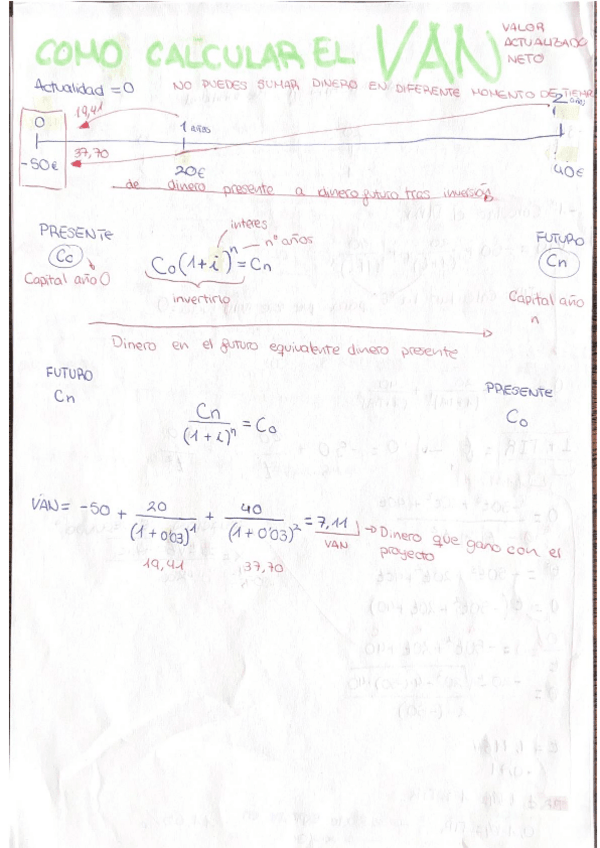 COMO CALCULAR EL VAN
VALOR
ACTUALIZADO
NETO
Actualidad = 0
NO PUEDES SUMAR DINERO EN DIFERENTE MOMENTO DE TIEMP
19,41
0
1 años
2 años
-50€
37,70
20€
40€
de dinero presente a dinero futuro tras inversión
interes
nº años
PRESENTE
Co
Capital año 0
Co(1+i)^n = Cn
invertirlo
FUTURO
Cn
Capital año
n
Dinero en el futuro equivalente dinero presente
FUTURO
Cn
PRESENTE
Co
Cn/(1+i)^n = Co
VAN = -50 + 20/(1+0'03)^1 + 40/(1+0'03)^2 = 7,11 → Dinero que gano con el
proyecto
VAN
19,41
37,70